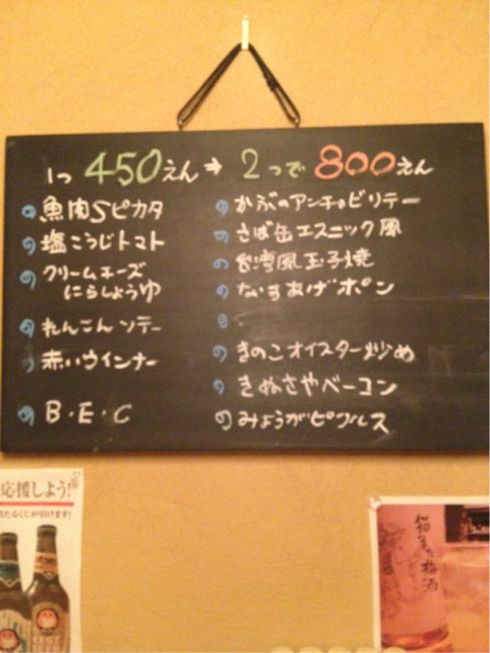 1つ 450えん→ 2つで 800えん
魚肉Sピカタ
塩こうじトマト
クリームチーズ
にらしょうゆ
れんこんソテー
赤いウインナー
B・E・C
かぶのアンチョビリテー
さば缶エスニック風
台湾風玉子焼
なすあげポン
きのこオイスター炒め
きぬさやベーコン
みょうがピクルス
応援しよう!
たるくじが引けます!
猫また梅酒